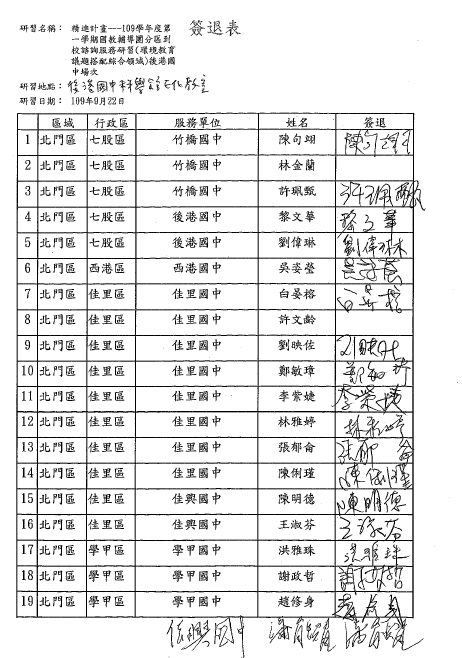 研習名稱: 精進計畫---109學年度第 簽退表
一學期國教輔導團分區到
校諮詢服務研習(環境教育
議題搭配綜合領域)後港國
中場次
研習地點: 後港國中科學館
研習日期: 109年9月22日
區域 行政區 服務單位 姓名 簽退
1 北門區 七股區 竹橋國中 陳句翊 陳句翊
2 北門區 七股區 竹橋國中 林金蘭
3 北門區 七股區 竹橋國中 許珮甄 許珮甄
4 北門區 七股區 後港國中 黎文華 黎文華
5 北門區 七股區 後港國中 劉偉琳 劉偉琳
6 北門區 西港區 西港國中 吳姿瑩
7 北門區 佳里區 佳里國中 白晏榕 白晏榕
8 北門區 佳里區 佳里國中 許文齡
9 北門區 佳里區 佳里國中 劉映佐 劉映佐
10 北門區 佳里區 佳里國中 鄭敏瑋
11 北門區 佳里區 佳里國中 李縈婕 李縈婕
12 北門區 佳里區 佳里國中 林雅婷 林雅婷
13 北門區 佳里區 佳里國中 張郁侖 張郁侖
14 北門區 佳里區 佳里國中 陳俐瑾 陳俐瑾
15 北門區 佳里區 佳興國中 陳明德 陳明德
16 北門區 佳里區 佳興國中 王淑芬 王淑芬
17 北門區 學甲區 學甲國中 洪雅珠 洪雅珠
18 北門區 學甲區 學甲國中 謝政哲 謝政哲
19 北門區 學甲區 學甲國中 趙修身
佳興國中